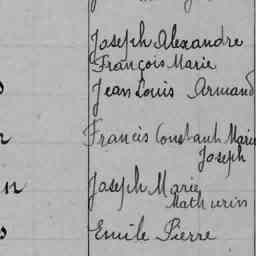 Joseph Alexandre
François Marie
Jean Louis Armand
Francis Constant Marie
Joseph
Joseph Marie
Mathurin
Emile Pierre